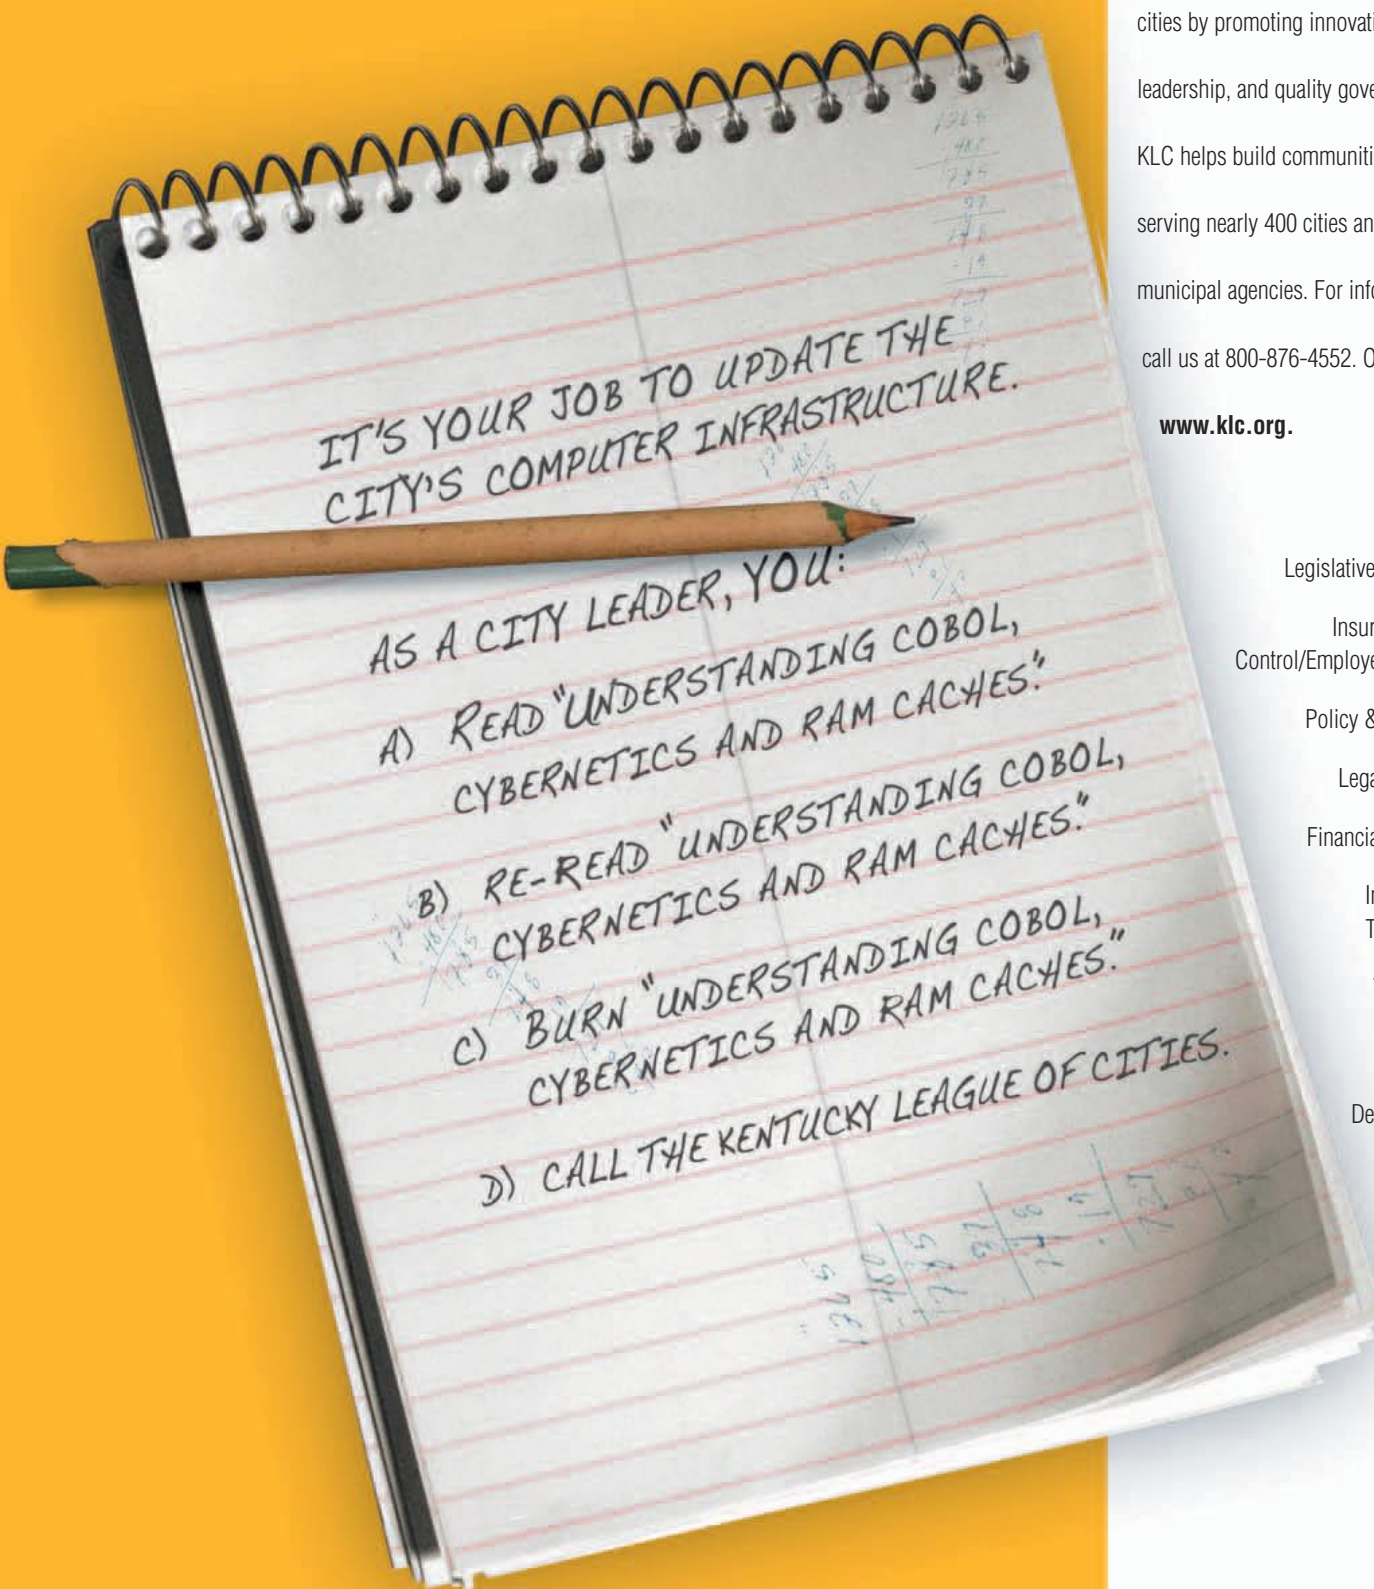 IT'S YOUR JOB TO UPDATE THE
CITY'S COMPUTER INFRASTRUCTURE.
AS A CITY LEADER, YOU:
A) READ "UNDERSTANDING COBOL,
CYBERNETICS AND RAM CACHES."
B) RE-READ "UNDERSTANDING COBOL,
CYBERNETICS AND RAM CACHES."
C) BURN "UNDERSTANDING COBOL,
CYBERNETICS AND RAM CACHES."
D) CALL THE KENTUCKY LEAGUE OF CITIES.
cities by promoting
leadership, and quality
KLC helps build
serving nearly 400 cities
municipal agencies. For
call us at 800-876-4552.
www.klc.org.
Legislative
Policy &